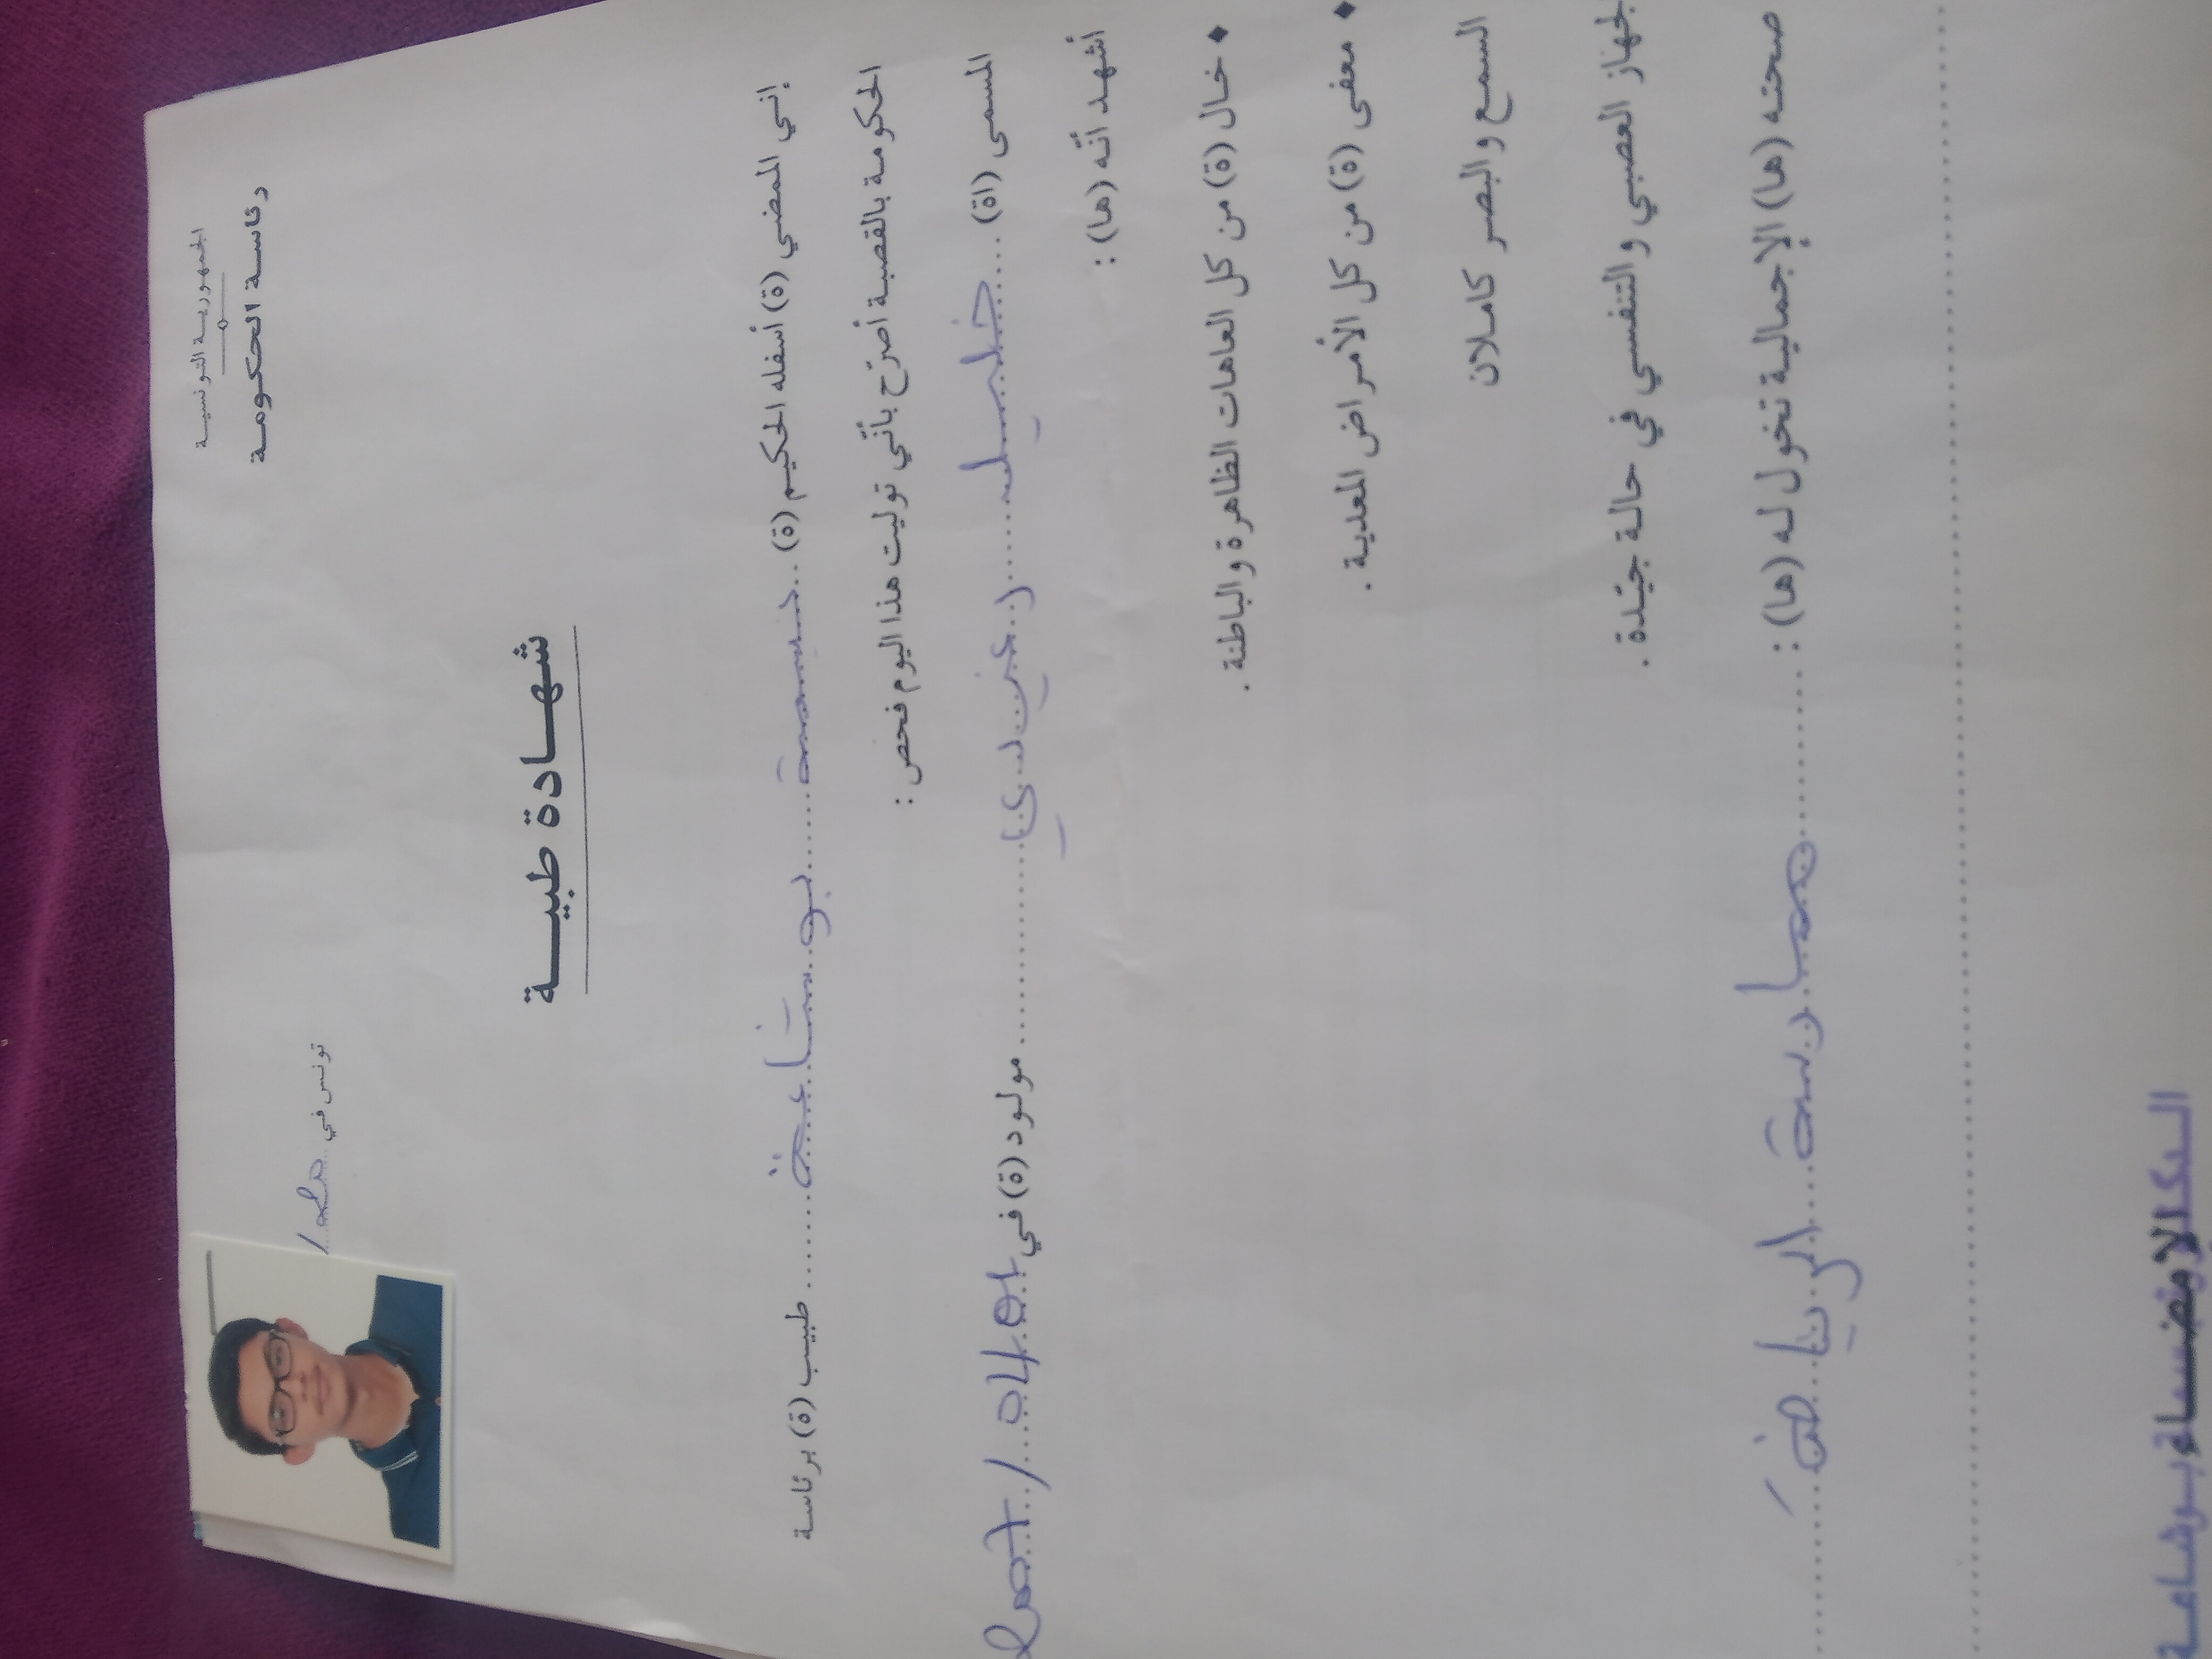 الجمهورية التونسية
رئاسة الحكومة
تونس في
شهادة طبية
إني الممضي (ة) أسفله الحكيم (ة) .. بسمة ..... بوشاعة ....... طبيب (ة) برئاسة
الحكومة بالقصبة أصرّح بأنّي توليت هذا اليوم فحص :
المسمى (اة) ... خليل ...... ........ مولود (ة) في
أشهد أنّه (ها) :
♦ خال (ة) من كل العاهات الظاهرة والباطنة .
♦ معفى (ة) من كل الأمراض المعدية .
السمع والبصر كاملان
الجهاز العصبي والتنفسي في حالة جيّدة .
صحته (ها) الإجمالية تخول له (ها) : ........ ممارسة .... الرياضة ........
الإمضاء
بوشاعة